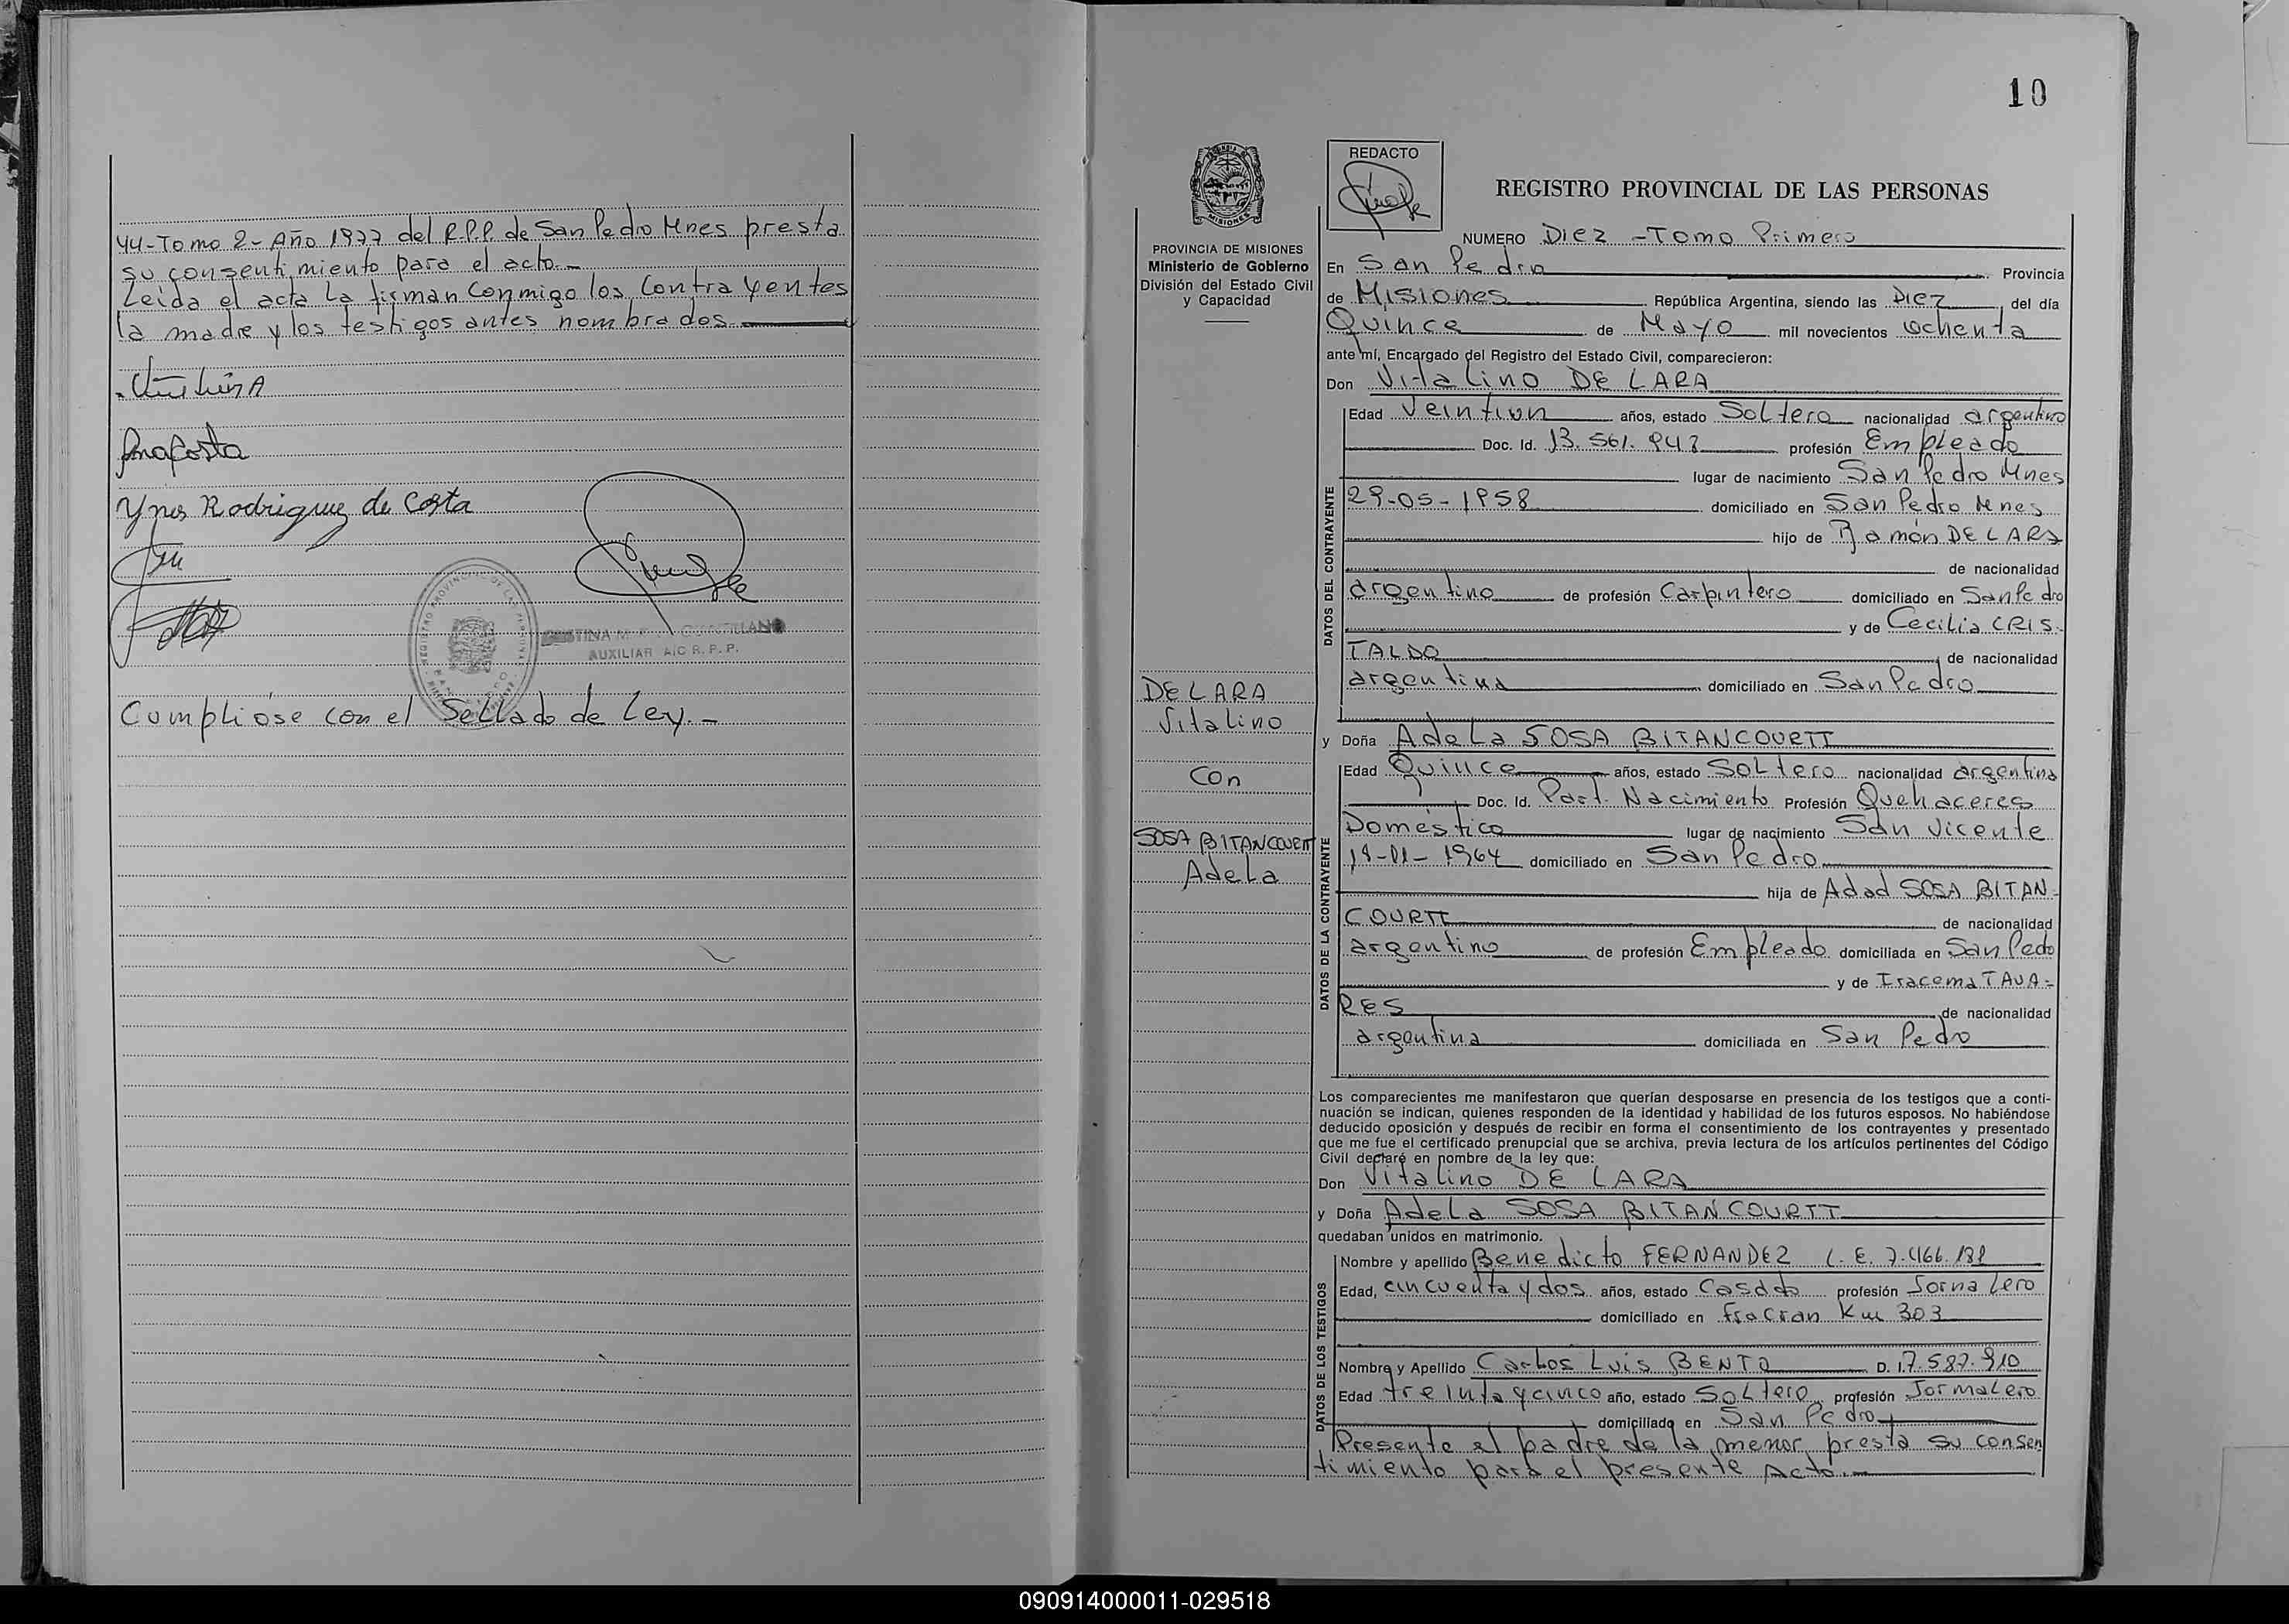 44-Tomo 2-Año 1977 del R.P.P. de San Pedro Mnes presta
su consentimiento para el acto.-
Leída el acta la firman conmigo los contrayentes
la madre y los testigos antes nombrados
Ana Costa
Ynes Rodriguez de Costa
AUXILIAR A/C R. P. P.
Cumplióse con el Sellado de Ley.-
10
REDACTO
REGISTRO PROVINCIAL DE LAS PERSONAS
NUMERO Diez -Tomo Primero
PROVINCIA DE MISIONES
Ministerio de Gobierno
División del Estado Civil
y Capacidad
En San Pedro Provincia
de Misiones República Argentina, siendo las Diez del día
Quince de Mayo mil novecientos ochenta
ante mí, Encargado del Registro del Estado Civil, comparecieron:
Don Vitalino DE LARA
DATOS DEL CONTRAYENTE
Edad Veintiun años, estado Soltero nacionalidad argentino
Doc. Id. 13.561.947 profesión Empleado
lugar de nacimiento San Pedro Mnes
29-05-1958 domiciliado en San Pedro Mnes
hijo de Ramón DE LARA
de nacionalidad
argentino de profesión Carpintero domiciliado en San Pedro
y de Cecilia CRIS-
TALDO de nacionalidad
argentina domiciliado en San Pedro
DE LARA
Vitalino
Con
SOSA BITANCOURTT
Adela
y Doña Adela SOSA BITANCOURTT
DATOS DE LA CONTRAYENTE
Edad Quince años, estado Soltero nacionalidad argentina
Doc. Id. Part. Nacimiento Profesión Quehaceres
Domestico lugar de nacimiento San Vicente
1964 domiciliado en San Pedro
hija de Adad SOSA BITAN-
COURTT de nacionalidad
argentino de profesión Empleado domiciliada en San Pedo
y de Iracema TAVA-
RES de nacionalidad
argentina domiciliada en San Pedro
Los comparecientes me manifestaron que querían desposarse en presencia de los testigos que a conti-
nuación se indican, quienes responden de la identidad y habilidad de los futuros esposos. No habiéndose
deducido oposición y después de recibir en forma el consentimiento de los contrayentes y presentado
que me fue el certificado prenupcial que se archiva, previa lectura de los artículos pertinentes del Código
Civil declaré en nombre de la ley que:
Don Vitalino DE LARA
y Doña Adela SOSA BITANCOURTT
quedaban unidos en matrimonio.
DATOS DE LOS TESTIGOS
Nombre y apellido Benedicto FERNANDEZ L.E. 7.466.181
Edad, cincuenta y dos años, estado Casado profesión Jornalero
domiciliado en Fracran Km 303
Nombre y Apellido Carlos Luis BENTO D. 17.587.910
Edad treinta y cinco año, estado Soltero profesión Jornalero
domiciliado en San Pedro
Presente el padre de la menor presta su consen
timiento para el presente Acto.-
090914000011-029518